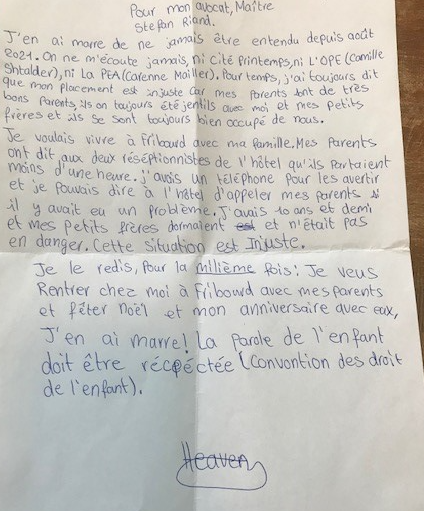 Pour mon avocat, Maître
Stefan Riand.
J'en ai marre de ne jamais être entendu depuis août
2021. On ne m'écoute jamais, ni Cité Printemps, ni L'OPE (Camille
Shtalder), ni La PEA (Carenne Maller). Pour temps, j'ai toujours dit
que mon placement est injuste car mes Parents sont de très
bons Parents, ils on toujours été jentils avec moi et mes Petits
frères et ils se sont toujours bien occupé de nous.
Je voulais vivre à Fribourd avec ma famille. Mes Parents
ont dit aux deux réséptionnistes de l'hôtel qu'ils Partaient
moins d'une heure. j'avais un téléphone Pour les avertir
et je Pouvais dire à l'hôtel d'appeler mes parents si
il y avait eu un Problème. J'avais 10 ans et demi
et mes Petits frères dormaient et n'était pas
en danger. Cette situation est Injuste.
Je le redis, Pour la milième fois: Je veus
Rentrer chez moi à Fribourd avec mes parents
et fêter noël et mon anniversaire avec eux,
J'en ai marre! La parole de l'enfant
doit être récpéctée (Convention des droit
de l'enfant).
Heaven